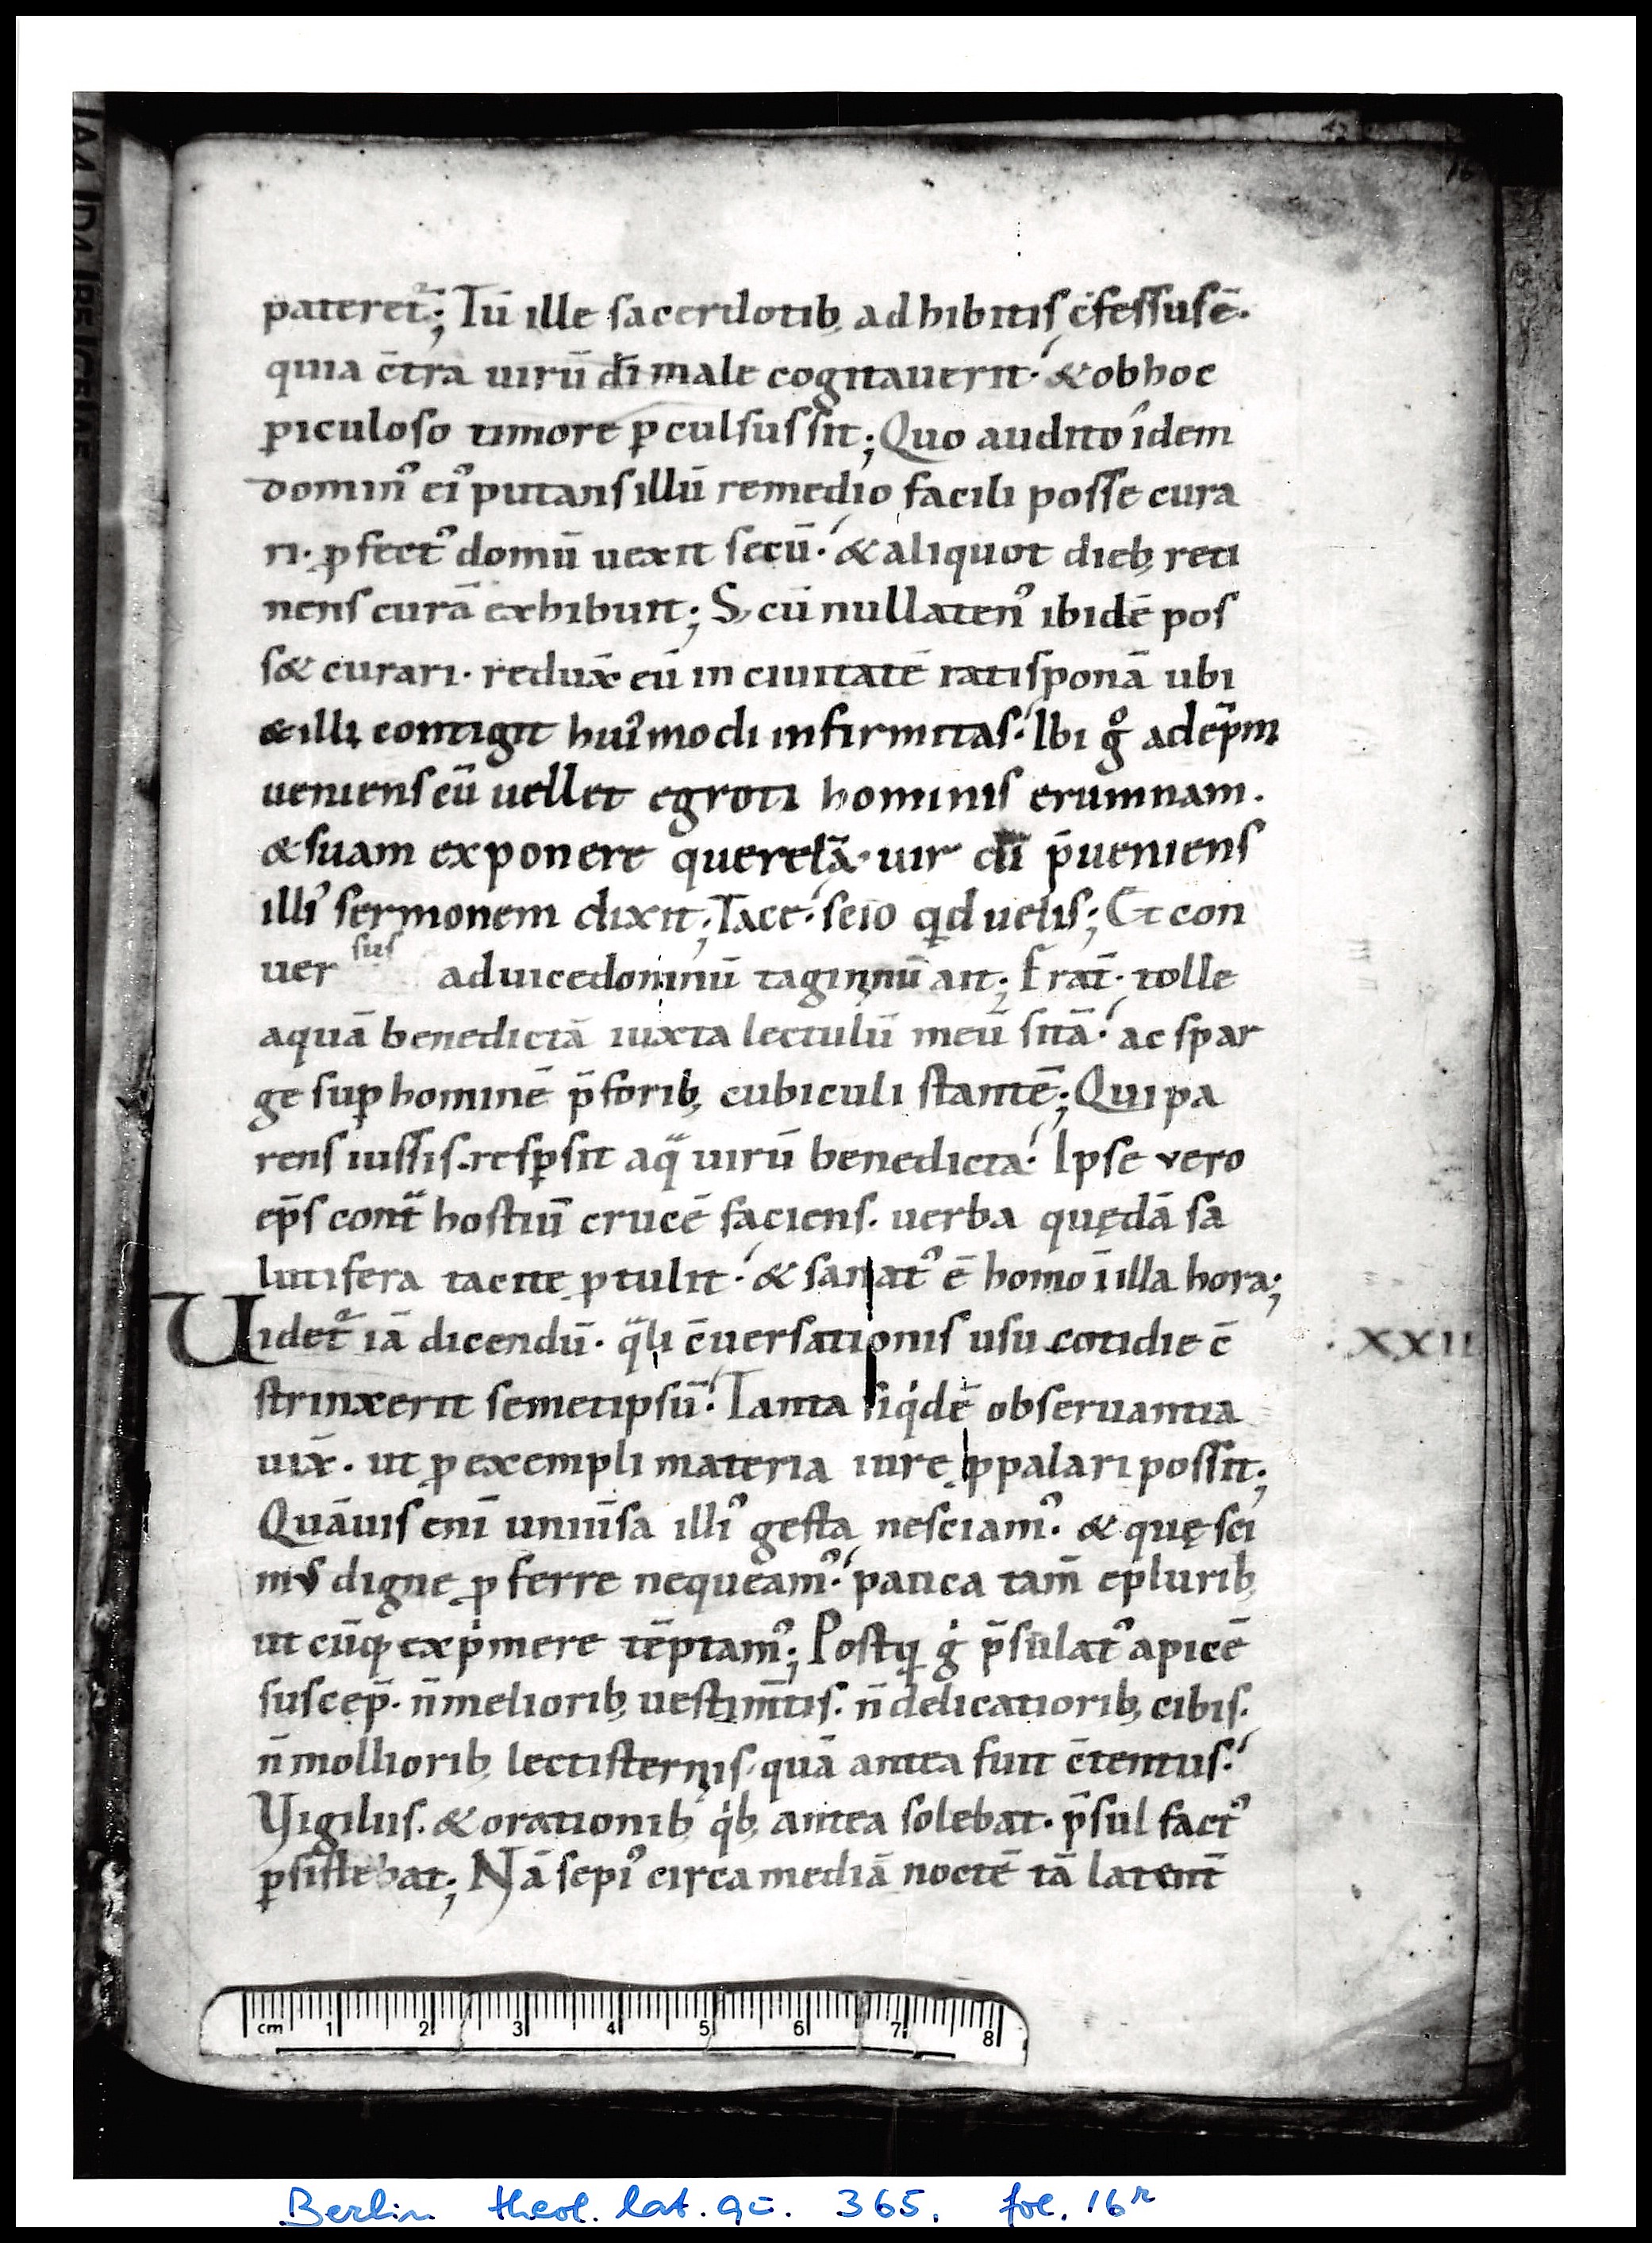 16
pateret᷑; Tū ille sacerdotib; adhibitis c̄fessus ē·
quia c̄tra uirū dī male cogitauerit· & ob hoc
ꝑiculoso timore ꝑculsus sit; Quo audito idem
dominꝰ eiꝰ putans illū remedio facili posse cura
ri· ꝓfectꝰ domū uexit secū· & aliquot dieb; reti
nens curā exhibuit; S; cū nullatenꝰ ibidē pos
s& curari· redux̄ eū in ciuitatē ratisponā ubi
& illi contigit huiꝰmodi infirmitas· Ibi gͦ ad ep̄m
ueniens cū uellet egroti hominis erumnam·
& suam exponere querelā· uir dī p̄ueniens
illiꝰ sermonem dixit; Tace· scio qd uelis; Et con
uersus ad uicedominū taginnū ait; Frat̄· tolle
aquā benedictā iuxta lectulū meū sitā· ac spar
ge suꝑ hominē p̄ forib; cubiculi stantē; Qui pa
rens iussis· resꝑsit aqᷓ uirū benedicta· Ipse vero
ep̄s contᷓ hostiū crucē faciens· uerba quędā sa
lutifera tacite ꝓtulit· & sanatꝰ ē homo ī illa hora;
Uidet᷑ iā dicendū· qᷓli c̄uersationis usu cotidie c̄ ·XXII
strinxerit semetipsū· Tanta siqͥdē obseruantia
uix̄· ut ꝓ exempli materia iure ꝓpalari possit;
Quāuis enī uniūsa illiꝰ gesta nesciamꝰ· & quę sci
mus digne ꝓferre nequeamꝰ· pauca tam̄ e plurib;
ut cūq; expͥmere tēptamꝰ; Postqꝫ gͥ p̄sulatꝰ apicē
suscep̄· n̄ meliorib; uestim̄tis· n̄ delicatiorib; cibis·
n̄ molliorib; lectisternis· quā antea fuit c̄tentus·
Vigiliis· & orationib; qͥb; antea solebat· p̄sul factꝰ
ꝑsistebat; Nā sepiꝰ circa mediā noctē tā latent̄
cm 1 2 3 4 5 6 7 8
Berlin theol. lat. qū. 365. fol. 16r